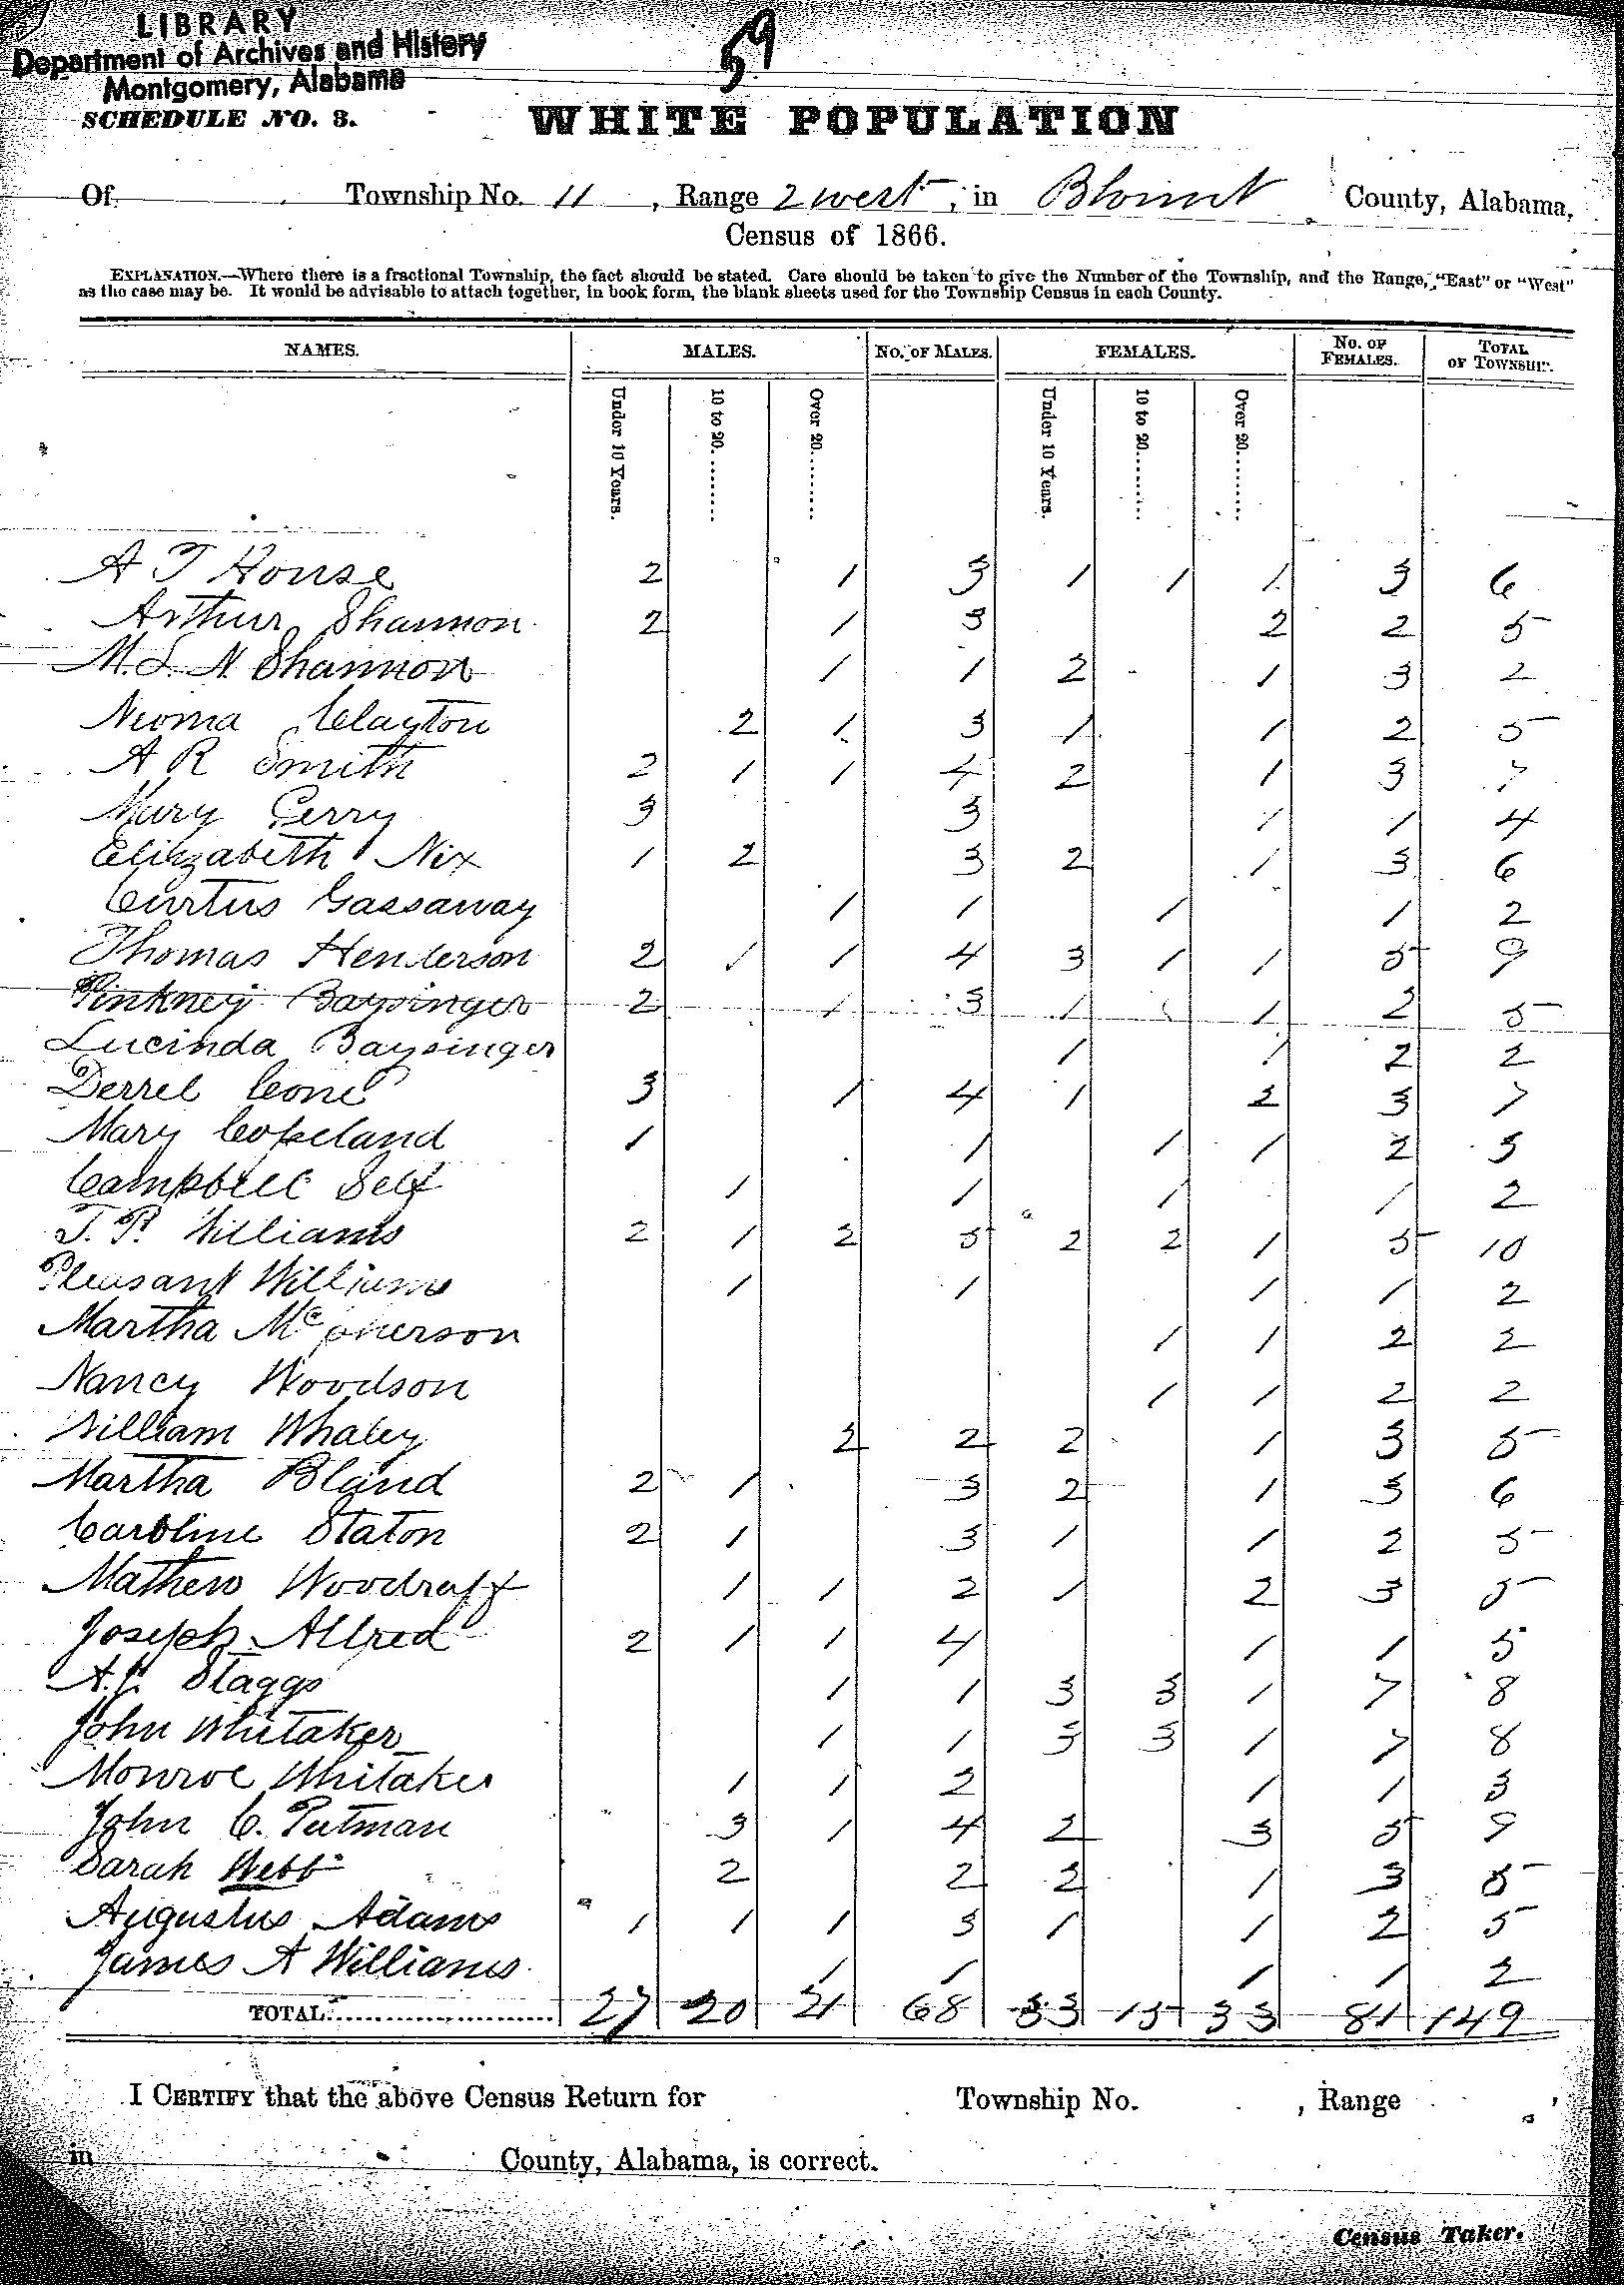 LIBRARY
Department of Archives and History
Montgomery, Alabama
59
SCHEDULE NO. 3.
WHITE POPULATION
Of Township No. 11, Range 2 west, in Blount County, Alabama,
Census of 1866.
EXPLANATION.—Where there is a fractional Township, the fact should be stated. Care should be taken to give the Number of the Township, and the Range, "East" or "West"
as the case may be. It would be advisable to attach together, in book form, the blank sheets used for the Township Census in each County.
NAMES. MALES. No. of Males. FEMALES. No. of Females. Total of Township.
Under 10 Years. 10 to 20........ Over 20......... Under 10 Years. 10 to 20........ Over 20.........
A T House 2 1 3 1 1 1 3 6
Arthur Shannon 2 1 3 2 2 5
M. L. N. Shannon 1 1 2 1 3 2
Neoma Clayton 2 1 3 1 1 2 5
A R Smith 2 1 1 4 2 1 3 7
Mary Perry 3 3 1 1 4
Elihzabeth Nix 1 2 3 2 1 3 6
Curtus Gassaway 1 1 1 1 2
Thomas Henderson 2 1 1 4 3 1 1 5 9
Pinkney Baysinger 2 1 3 1 1 2 5
Lucinda Baysinger 1 1 2 2
Derrel Cone 3 1 4 1 2 3 7
Mary Copeland 1 1 1 1 2 3
Campbell Self 1 1 1 1 2
T. P. Williams 2 1 2 5 2 2 1 5 10
Pleasant Williams 1 1 1 1 2
Martha McPherson 1 1 2 2
Nancy Woodson 1 1 2 2
William Whaley 2 2 2 1 3 5
Martha Bland 2 1 3 2 1 3 6
Caroline Staton 2 1 3 1 1 2 5
Mathew Woodruff 1 1 2 1 2 3 5
Joseph Allred 2 1 1 4 1 1 5
Staggs 1 1 3 3 1 7 8
John Whitaker 1 1 3 3 1 7 8
Monroe Whitaker 1 1 2 1 1 3
John C. Putman 3 1 4 2 3 5 9
Sarah Webb 2 2 2 1 3 5
Augustus Adams 1 1 1 3 1 1 2 5
James A Williams 1 1 1 1 2
TOTAL 27 20 21 68 33 15 33 81 149
I CERTIFY that the above Census Return for Township No. , Range ,
in County, Alabama, is correct.
Census Taker.